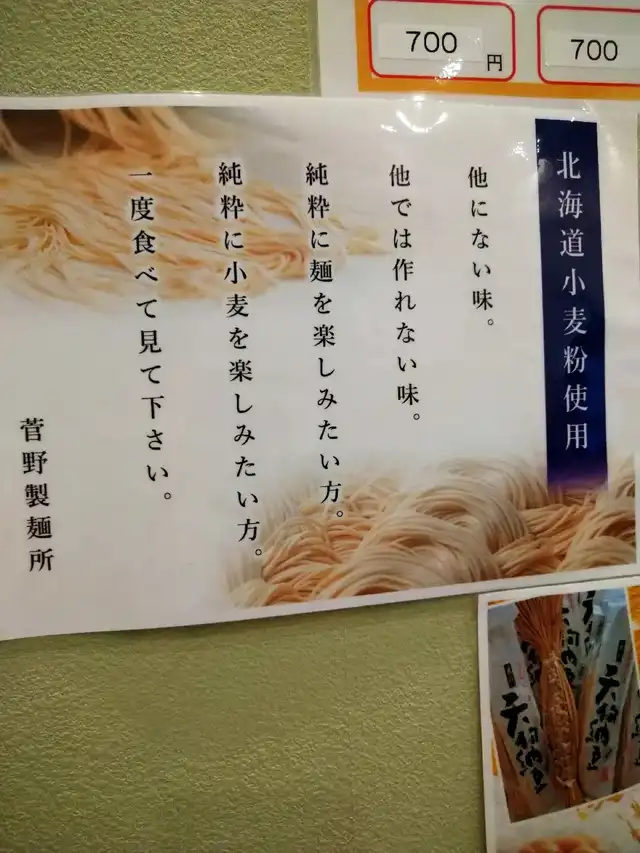 700
円
700
北海道小麦粉使用
他にない味。
他では作れない味。
純粋に麺を楽しみたい方。
純粋に小麦を楽しみたい方。
一度食べて見て下さい。
菅野製麺所